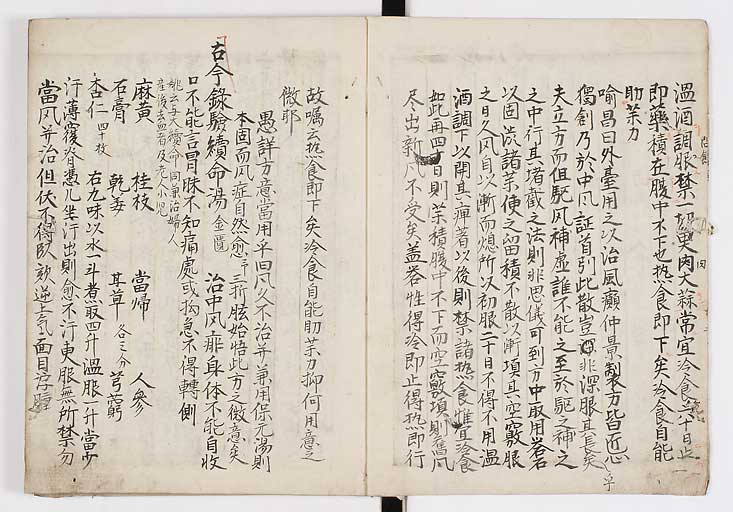 溫酒調服禁一切魚肉大蒜常宜冷食六十日止
即藥積在腹中不下也熱食即下矣冷食自能
助茶力
喻昌曰外臺用之以治風癲仲景製方皆匠心
獨創乃於中風証首引此散豈非深服其長乎
夫立方而但驅風補虛誰不能之至於驅之補之
之中行其堵截之法則非思儀可到方中取用礬石
以固澁諸茶使之留積不散以漸填其空竅服
之日久風自以漸而熄所以初服二十日不得不用溫
酒調下以開其痺著以後則禁諸熱食惟宜冷食
如此再四十日則茶積腹中不下而空竅填則舊風
尽出新風不受矣盖礬性得冷即止得熱即行
故嘱云熱食即下矣冷食自能助茶力抑何用意之
微耶
愚詳方意當用乎曰風久不治并兼用保元湯則
本固而風症自然愈予三折肱始悟此方之微意矣
古今錄驗續命湯 金匱 治中風痱身体不能自收
口不能言冒昧不知痛處或拘急不得轉側
姚云与大續命同兼治婦人
産後去血者及老人小児
麻黄 桂枝 當帰 人參
石膏 乾姜 甘草 各三分 芎藭
杏仁 四十枚 右九味以水一斗煮取四升溫服一升當少
汗薄覆脊憑几坐汗出則愈不汗更服無所禁勿
當風并治但伏不得臥欬逆上氣面目浮腫